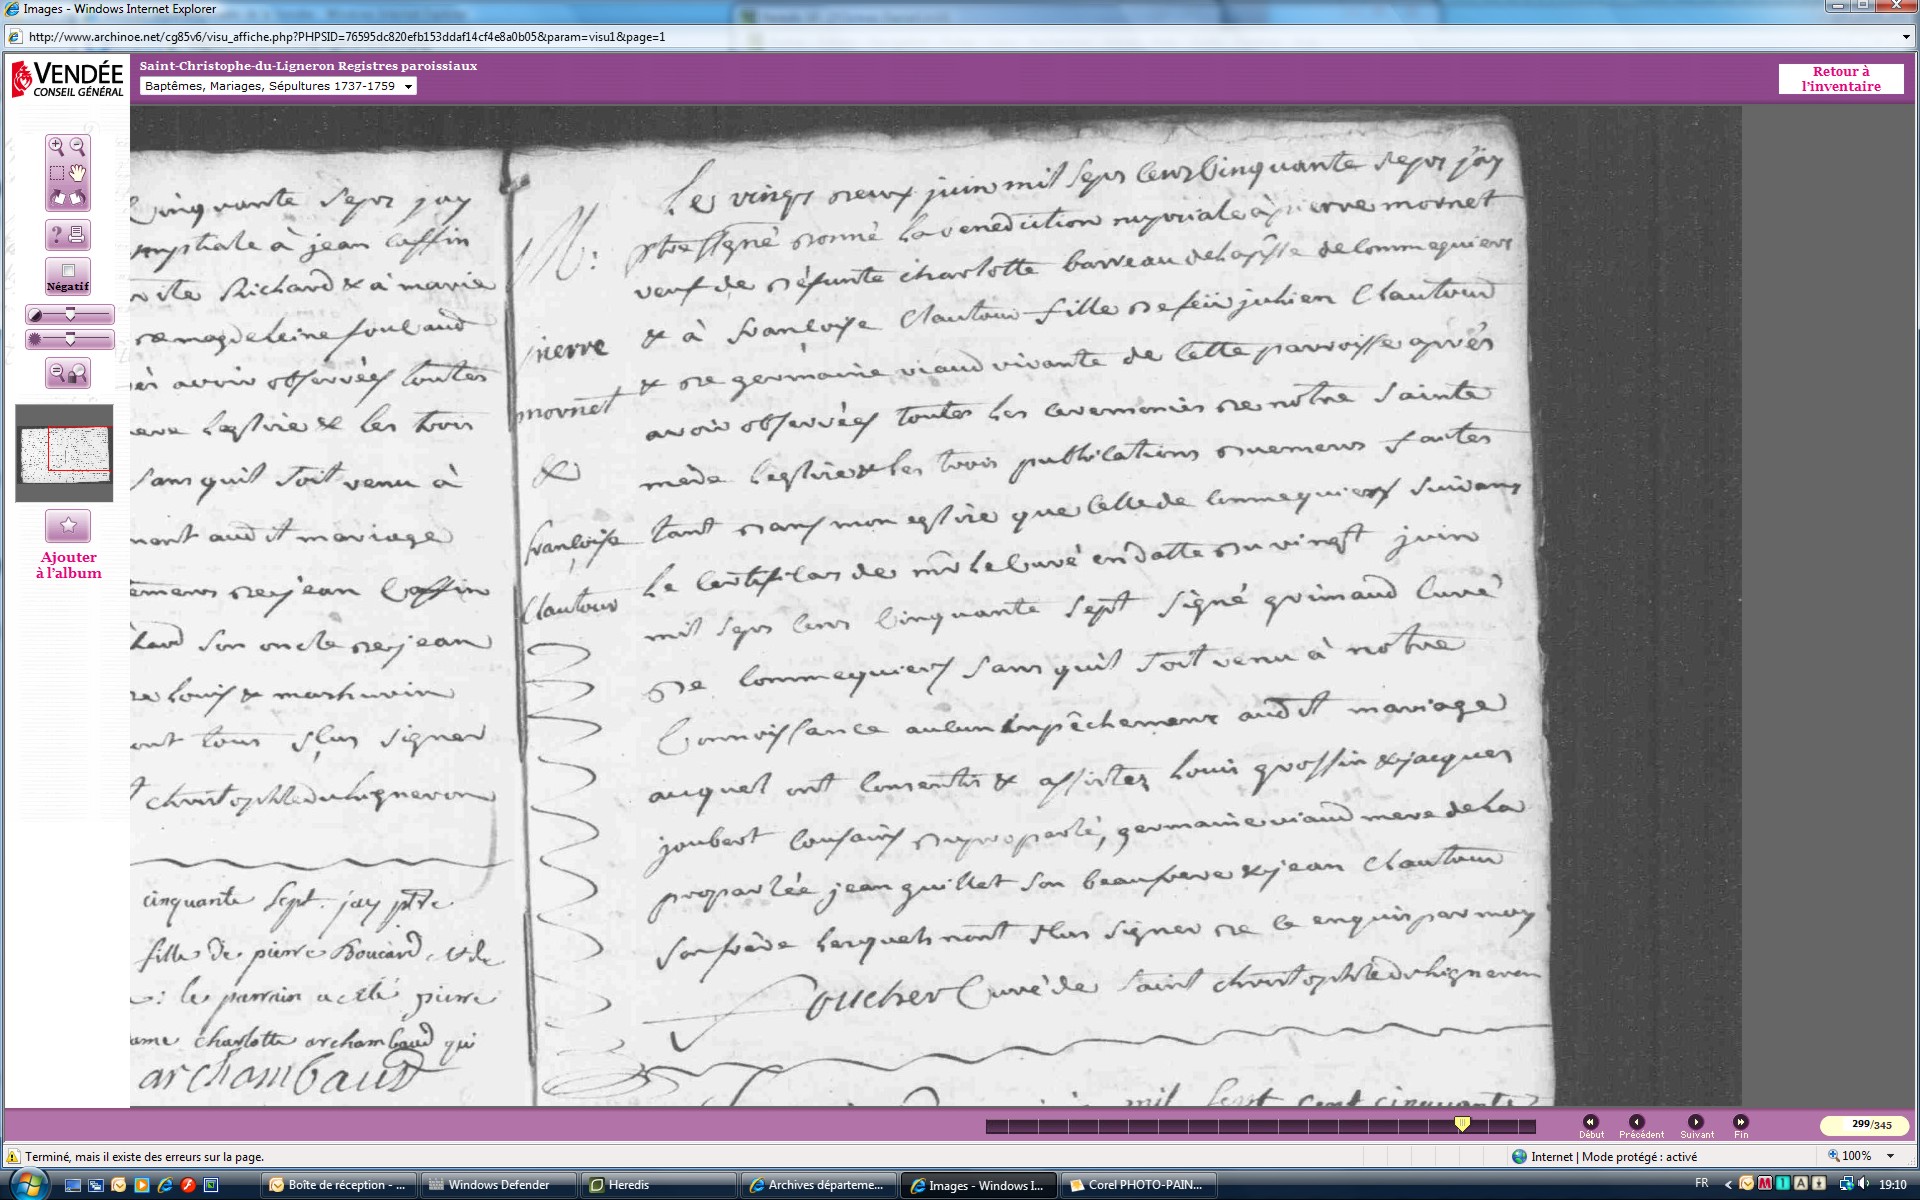 Images - Windows Internet Explorer
http://www.archinoe.net/cg85v6/visu_affiche.php?PHPSID=76595dc820efb153ddaf14cf4e8a0b05&param=visu1&page=1
VENDÉE
CONSEIL GÉNÉRAL
Saint-Christophe-du-Ligneron Registres paroissiaux
Baptêmes, Mariages, Sépultures 1737-1759
Retour à
l'inventaire
Négatif
Ajouter
à l'album
Cinquante sept jay
nuptiale à jean Caffin
Richard & à marie
de magdeleine foulaud
avoir observées toutes
mere leglise & les trois
sans quil soit venu à
audit mariage
de jean Caffin
son oncle de jean
louis & mathurin
ont tous signer
christophle du ligneron
cinquante sept. jay ptre
fille de pierre Boucard, & de
: le parrain a eté pierre
charlotte archambaud qui
archambaud
M:
pierre
mornet
&
françoise
Clautour
Le vingt deux juin mil sept cent Cinquante sept jay
ptre ssigné donné la benediction nuptiale à pierre mornet
veuf de défunte charlotte barreau de la psse de Commequiers
& à françoise Clautour fille de feü julien Clautour
& de germaine viaud vivante de cette parroisse aprés
avoir observées toutes les ceremonies de nôtre sainte
mere leglise & les trois publications duement faites
tant dans mon eglise que celle de Commequiers suivant
le certificat de mr le Curé en datte du vingt juin
mil sept cent Cinquante sept signé grimaud Curé
de Commequiers sans quil soit venu à nôtre
Connoissance aucun êmpêchement audit mariage
auquel ont consentis & assistez louis grossin & jacques
joubert cousains du proparlé, germaine viaud mere de la
proparlée jean guillet son beaufrere & jean Clautour
son frère lesquels n'ont sçus signer de ce enquis par moy
Foucher Curé de saint christophle du ligneron
mil sept cent cinquante
299/345
Début
Précédent
Suivant
Fin
Terminé, mais il existe des erreurs sur la page.
Internet | Mode protégé : activé
100%
Boîte de réception - ...
Windows Defender
Heredis
Archives départeme...
Images - Windows I...
Corel PHOTO-PAIN...
FR
19:10